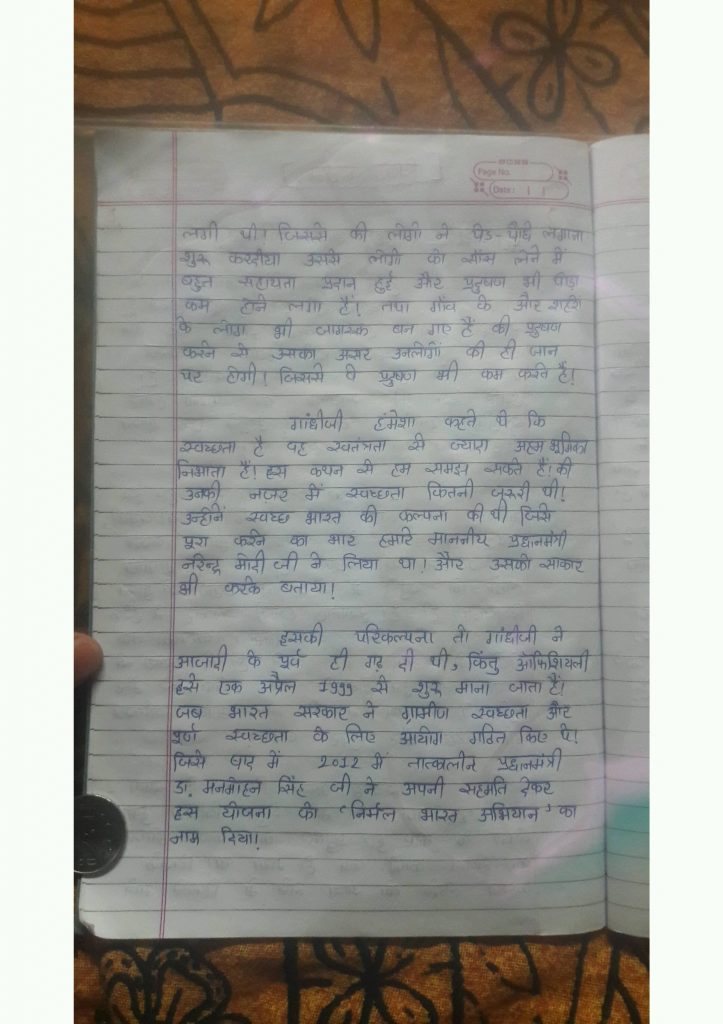 Page No.
Date :
लगी थी। जिससे की लोगो ने पेड-पौधे लगाना
शुरू करदीया उससे लोगो को साँस लेने में
बहुत सहायता प्रदान हुई और प्रदुषण भी थोडा
कम होने लगा हैं! तथा गाँव के और शहरो
के लोग भी जागरुक बन गए हैं की प्रदुषण
करने से उसका असर उनलोगों की ही जान
पर होगी! जिससे वे प्रदुषण भी कम करते हैं!
गांधीजी हंमेशा कहते थे कि
स्वच्छता है वह स्वतंत्रता से ज्यादा अहम भूमिका
निभाता हैं! इस कथन से हम समझ सकते हैं! की
उनकी नजर में स्वच्छता कितनी जुरूरी थी!
उन्होंनें स्वच्छ भारत की कल्पना की थी जिसे
पूरा करने का भार हमारे माननीय प्रधानमंत्री
नरेन्द्र मोदी जी ने लिया था! और उसको साकार
भी करके बताया!
इसकी परिकल्पना तो गांधीजी ने
आजादी के पूर्व ही गढ़ दी थी, किंतु ऑफिशियली
इसे एक अप्रैल 1999 से शुरू माना जाता हैं!
जब भारत सरकार ने ग्रामीण स्वच्छता और
पूर्ण स्वच्छता के लिए आयोग गठित किए थे!
जिसे बाद में 2012 में तात्कालीन प्रधानमंत्री
डा. मनमोहन सिंह जी ने अपनी सहमति देकर
इस योजना को 'निर्मल भारत अभियान' का
नाम दिया!